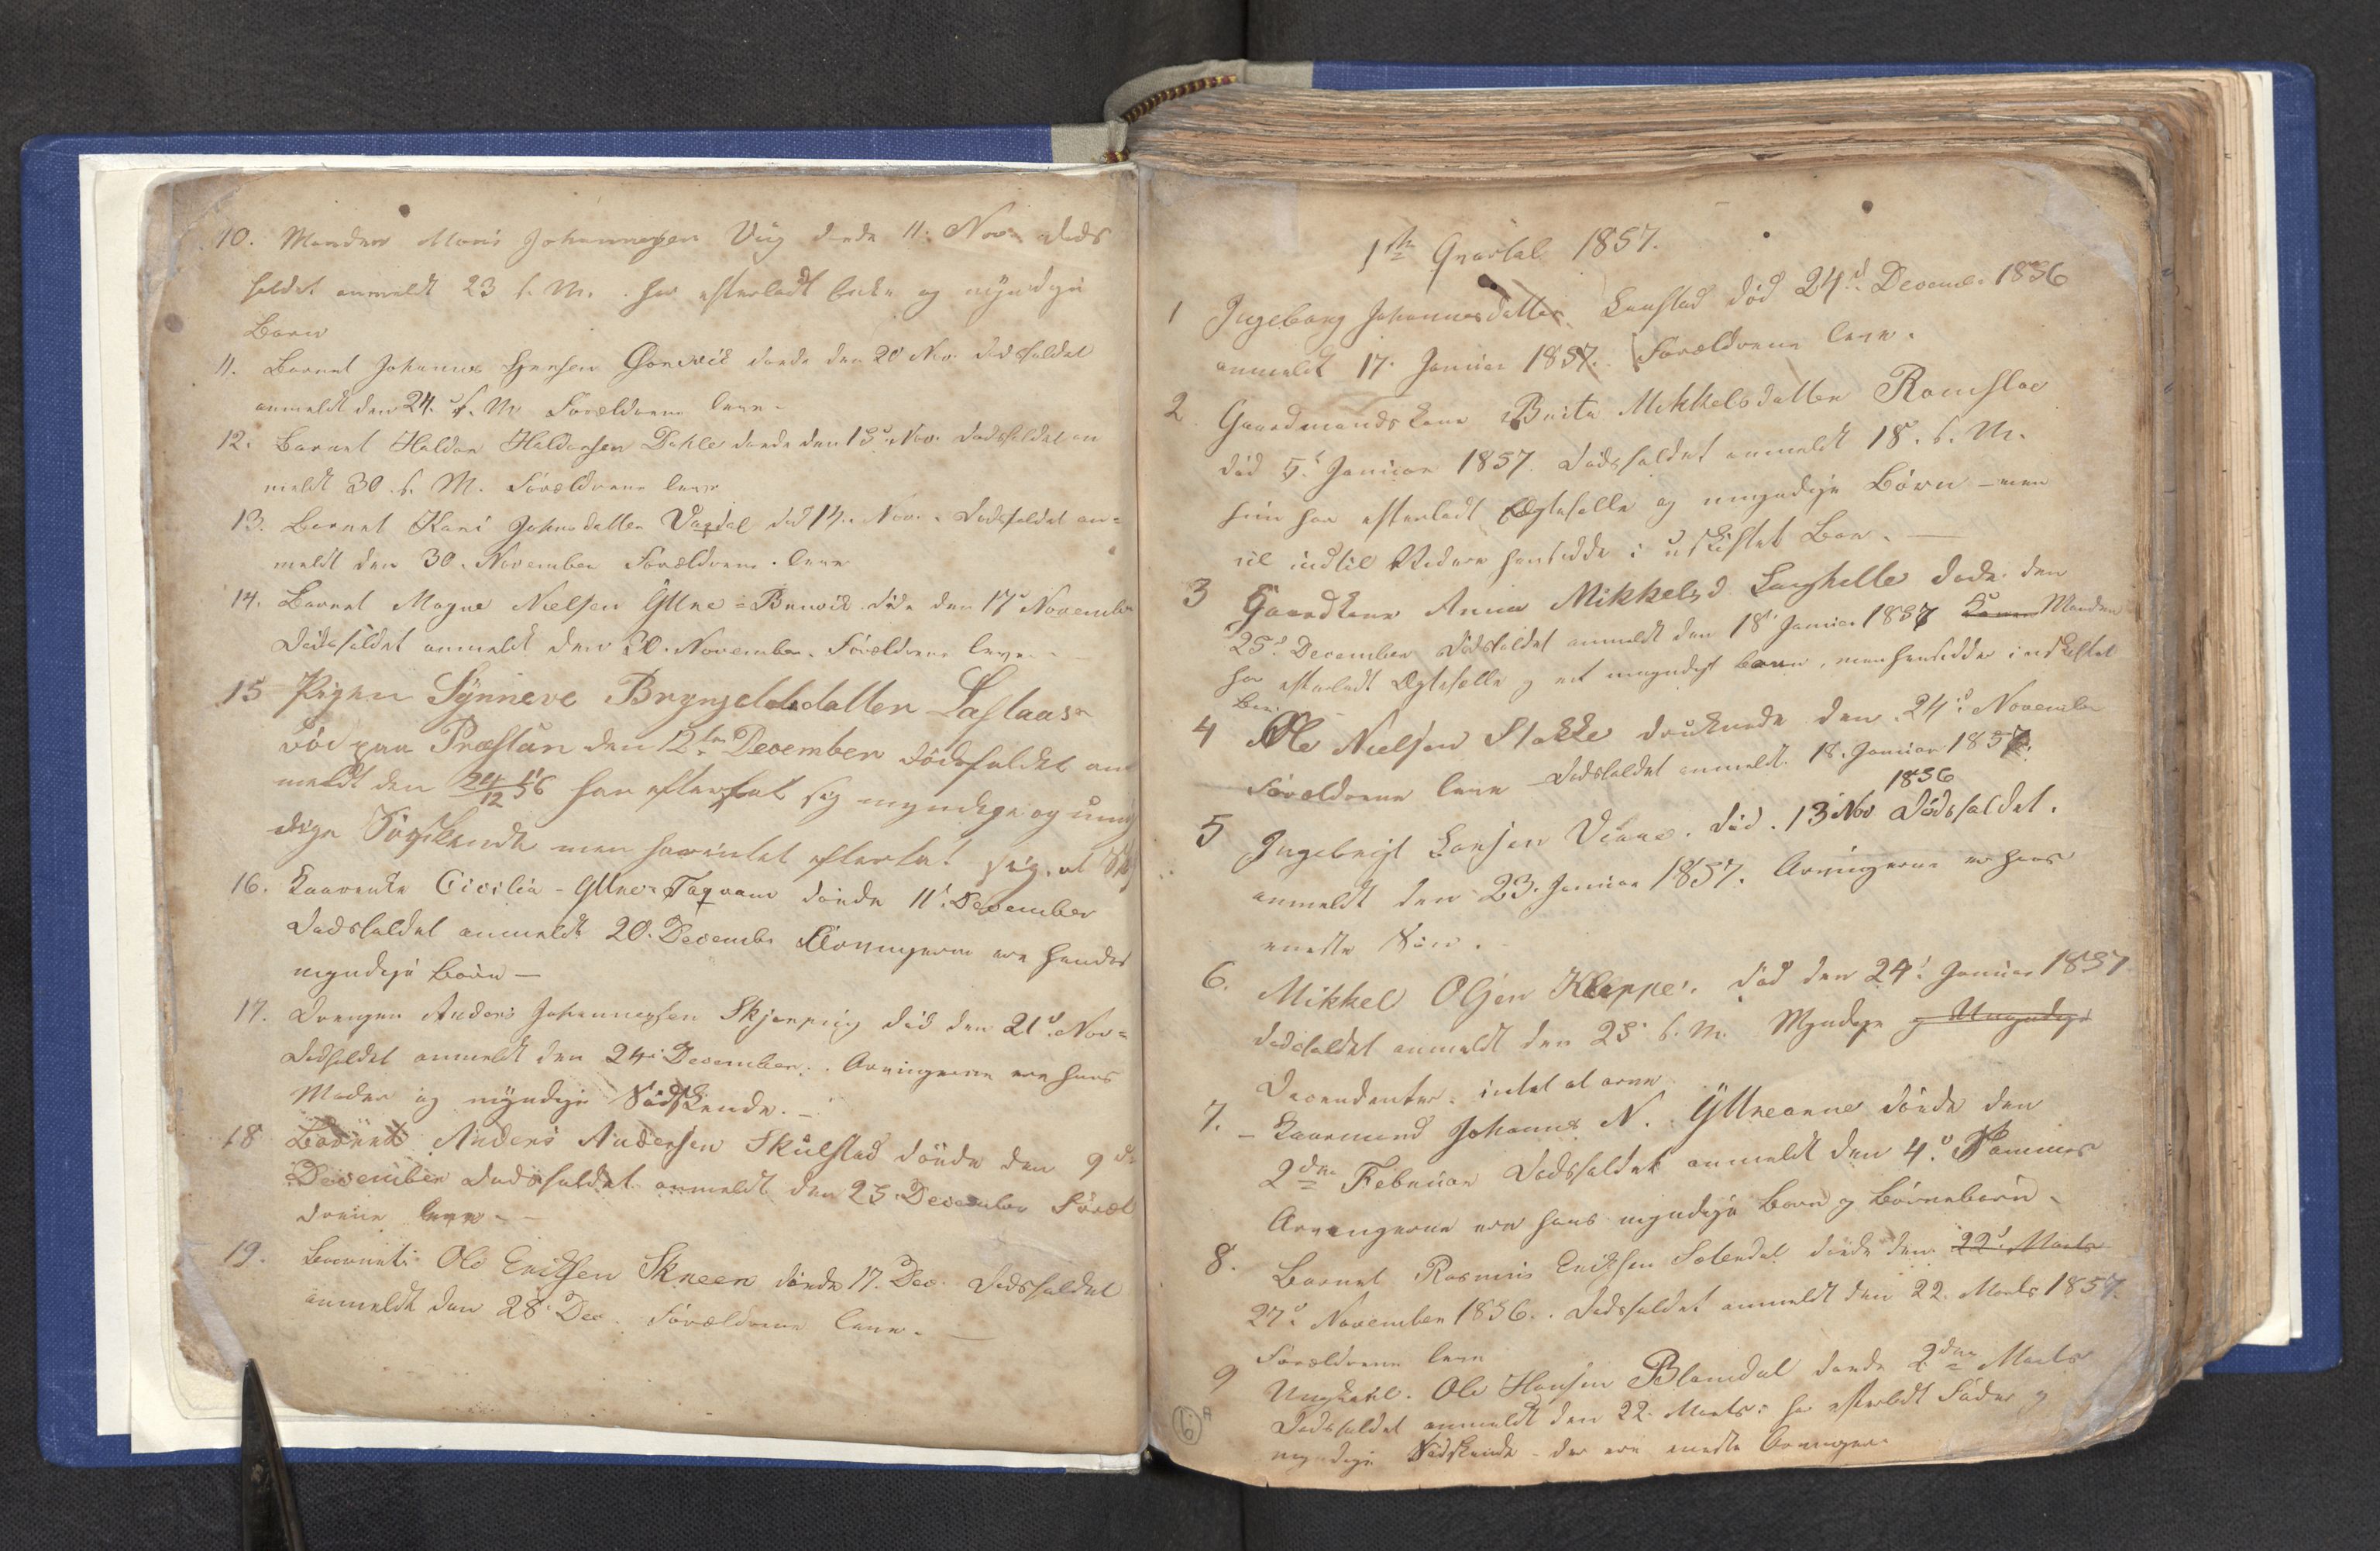 10. Manden Mons Johannessen Viig døde 11. Nov. Døds
faldet anmeldt 23 s. M. har efterladt Enke og myndige
Børn
11. Barnet Johannes Hansen døde den 20 Nov. Dødsfaldet
anmeldt den 24. s. M. Forældrene leve.
12. Barnet Haldor Haldorsen Dahle døde den 15. Nov. Dødsfaldet an
meldt 30. s. M. Forældrene leve
13. Barnet Kari Johnsdatter død 14. Nov. Dødsfaldet an=
meldt den 30. November Forældrene leve
14. Barnet Magne Nielsen Yttre=Bruvik døde den 17d November
Dødsfaldet anmeldt den 30. November. Forældrene leve.
15 Pigen Synneve Brynjelsdatter
død paa Præstun den 12te December Dødsfaldet an
meldt den 24/12 56 har efterlat sig myndige og umyn
dige Søskende men har intet efterlat sig at
16. Kaarenke Cicilia Yttre Taqvam døde 11. December
Dødsfaldet anmeldt 20. Decembr Arvingerne ere hendes
myndige Børn —
17. Drengen Anders Johannessen Skjerping død den 21d. Nov=
Dødsfaldet anmeldt den 24. December. Arvingerne ere hans
Moder og myndige Sødskende. —
18 Barnet Anders Andersen Skulstad døde den 9de
December Dødsfaldet anmeldt den 23. December Foræl
drene leve. —
19. Barnet Ole Erichsen Skreen døde 17. Dec. Dødsfaldet
anmeldt den 28. Dec. Forældrene leve. —
1ste Qvartal 1857.
1 Ingeborg Johannesdatter død 24d. Decemb. 1856
anmeldt 17. Januar 1857. Forældrene leve.
2. Gaardmandskone Brita Mikkelsdatter Romsloe
død 5. Januar 1857. Dødsfaldet anmeldt 18. s. M.
hun har efterladt Ægtefælle og umyndige Børn – men
vil indtil Videre hensidde i uskiftet Boe. —
3 Gaardkone Anna Mikkelsd. Langhelle døde den
25d December Dødsfaldet anmeldt den 18 Januar 1857 Konen Manden
har efterladt Ægtefælle og et umyndigt barn, men hensidder i uskiftet
Boe.
4 Ole Nielsen Stakke druknede den 24d November
Forældrene leve Dødsfaldet anmeldt 18. Januar 1857.
1856
5 Ingebrigt Larsen død. 13 Nov Dødsfaldet.
anmeldt den 23. Januar 1857. Arvingerne er hans
eneste Søn.
6. Mikkel Olsen Kleppe. død den 24. Januar 1857
Dødsfaldet anmeldt den 25 s. M. Myndige og Umyndige
Decendenter. intet at arve
7. – Kaarmand Johannes N. Yttreorne døde den
2den Februar Dødsfaldet anmeldt den 4. Sammes
Arvingerne ere hans myndige Børn og Børnebørn.
8. Barnet Rasmus Erichsen døde den 22. Marts
27d. November 1856. Dødsfaldet anmeldt den 22. Marts 1857.
Forældrene leve
9 Ungkarl. Ole Hansen Blomdal døde 2den Marts
Dødsfaldet anmeldt den 22. Marts: har efterladt Fader og
myndige Sødskende – der ere eneste Arvinger
6 A